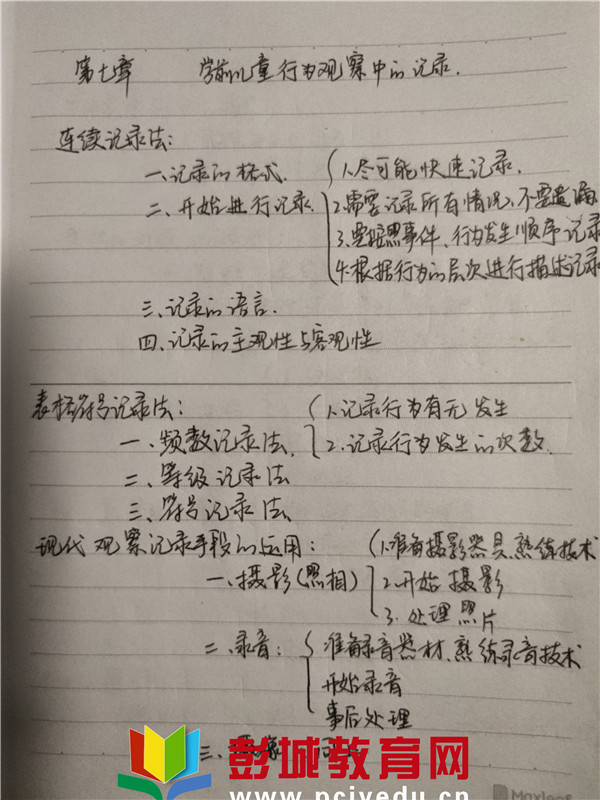 第七章 学前儿童行为观察中的记录.
连续记录法:
一.记录的格式.
1.尽可能快速记录.
二、开始进行记录
2.需要记录所有情况,不要遗漏
3.要按照事件、行为发生顺序记录
4.根据行为的层次进行描述记录
三.记录的语言.
四、记录的主观性与客观性
表格符号记录法:
1.记录行为有无发生
一、频数记录法.
2.记录行为发生的次数.
二、等级记录法
三、符号记录法
现代观察记录手段的运用:
1.准备摄影器具,熟练技术
一、摄影(照相)
2.开始摄影
3.处理照片
二、录音:
准备录音器材、熟练录音技术
开始录音
事后处理
三、
彭城教育网
www.pcjyedu.cn
Maxleaf